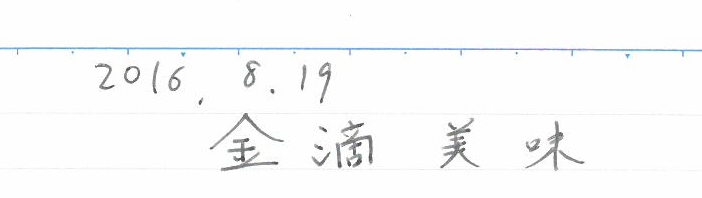 2016. 8. 19
金滴 美味